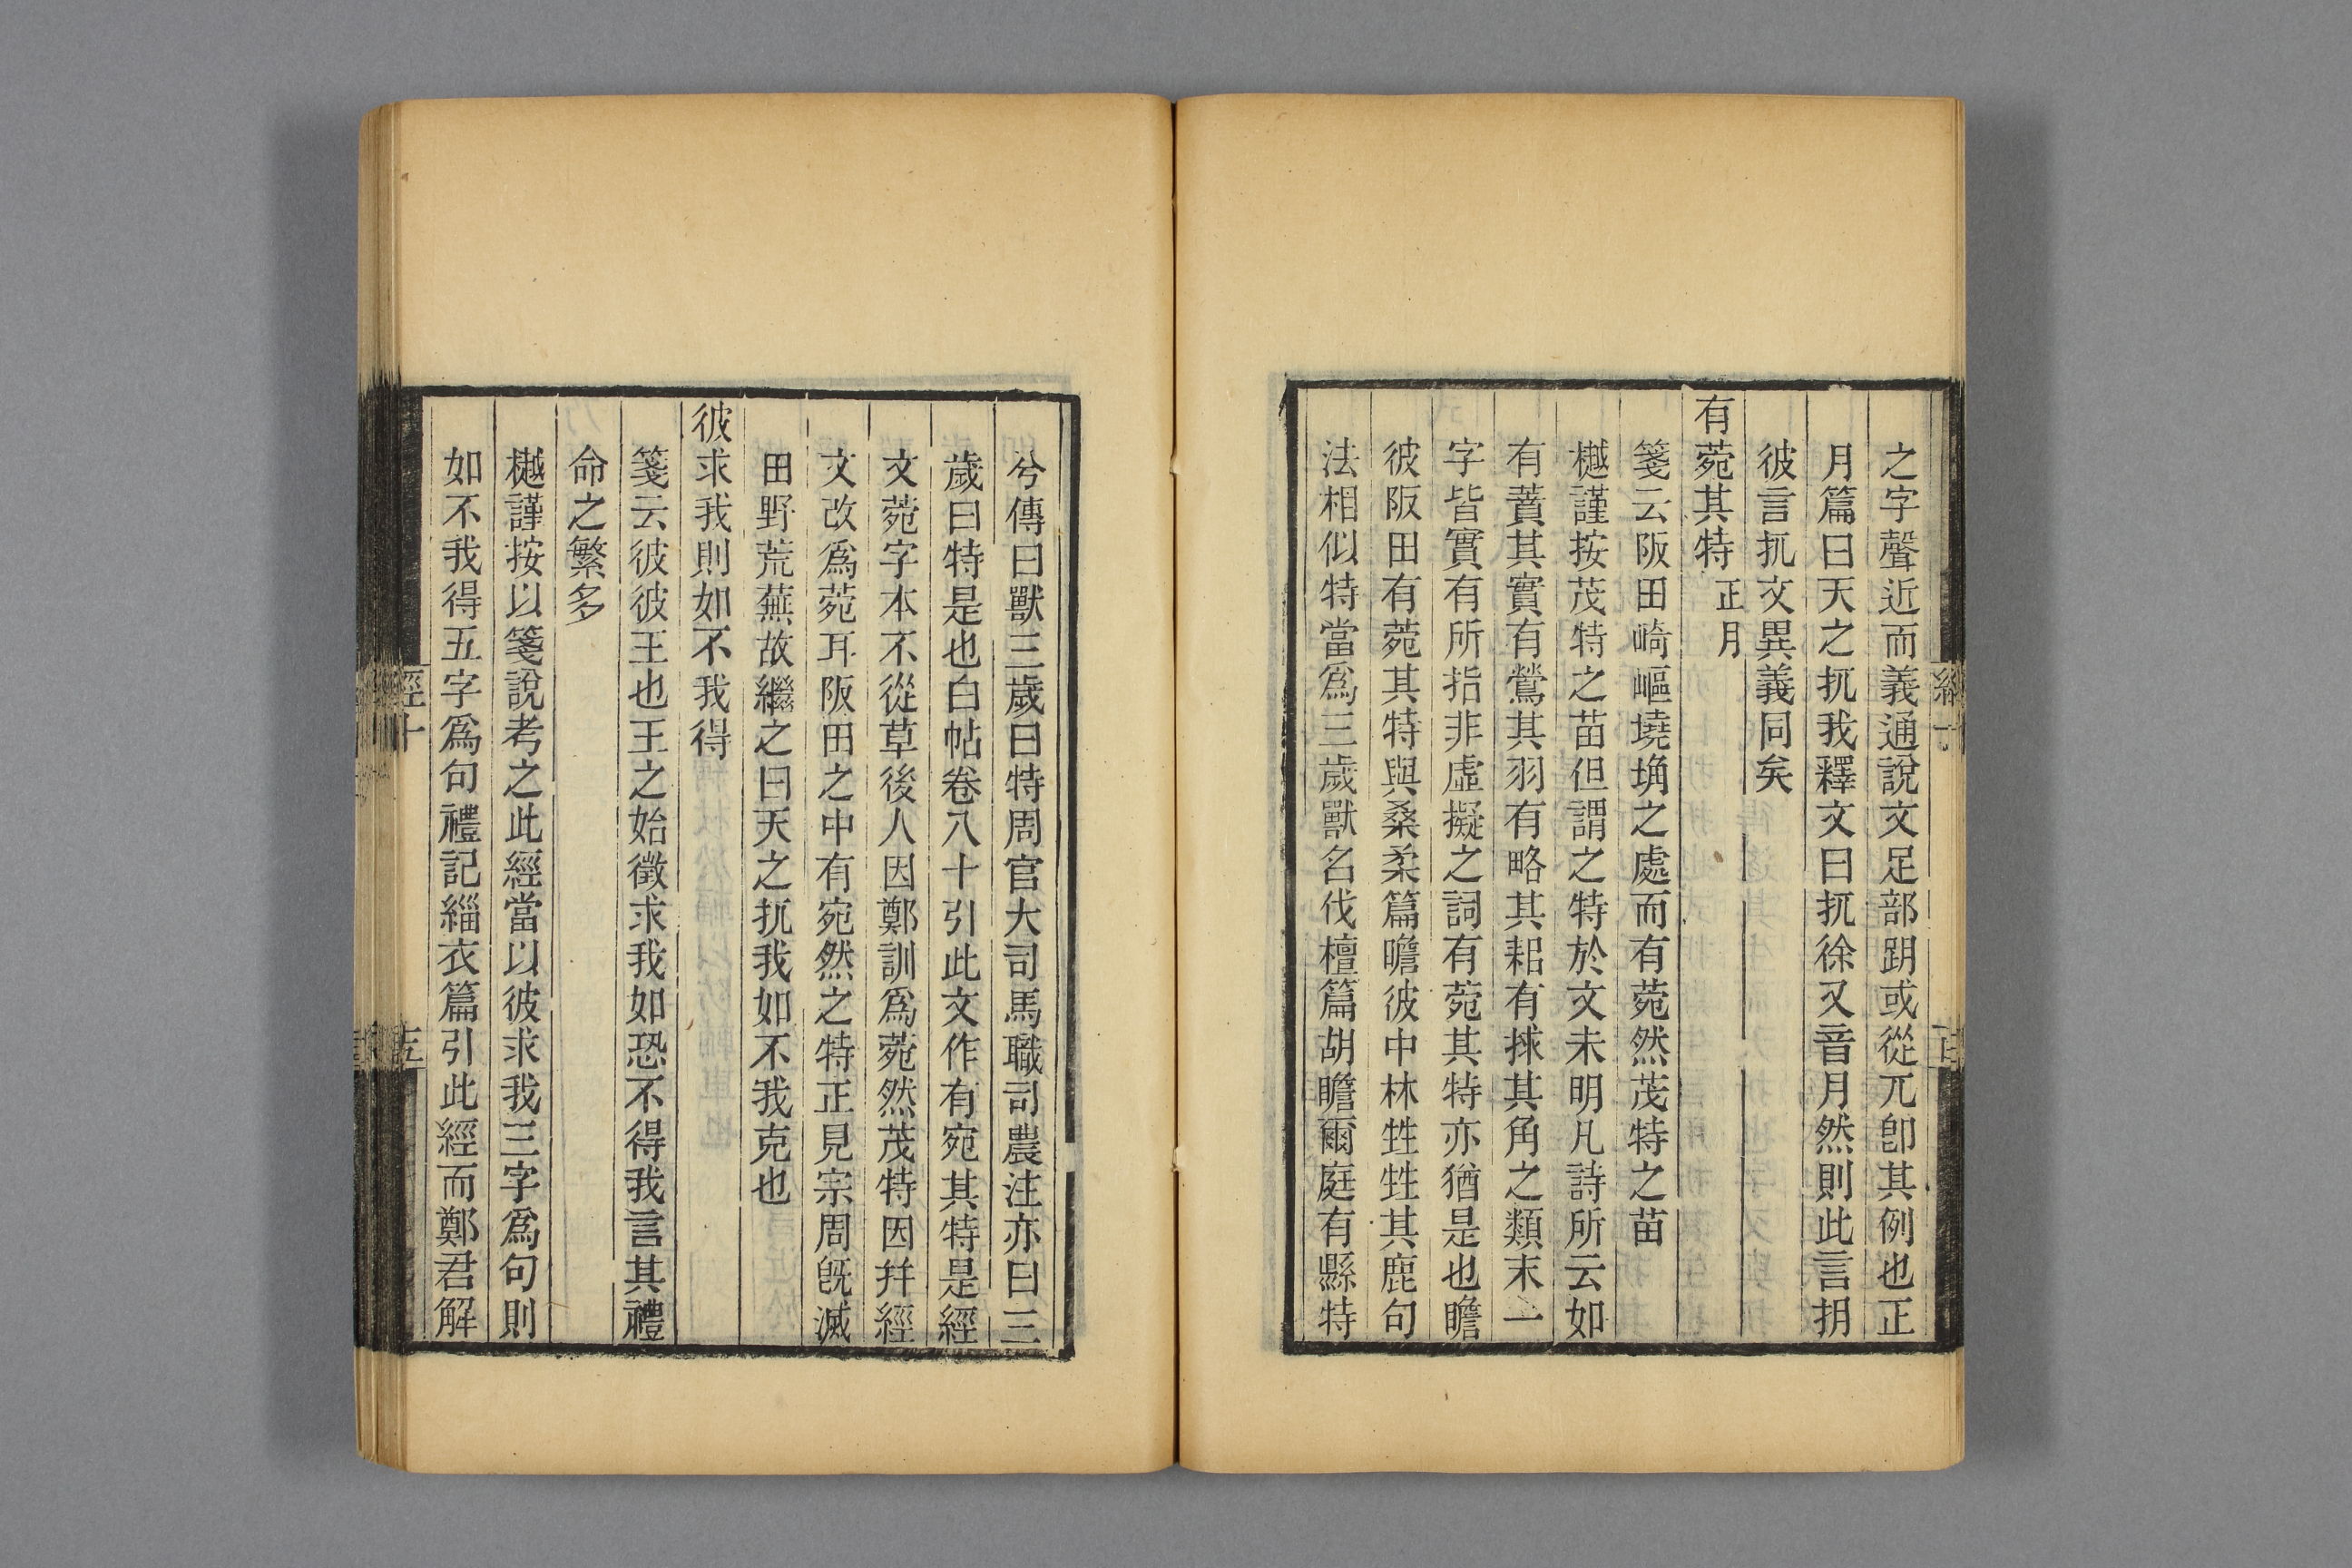 之字聲近而義通說文足部跀或從兀卽其例也正
月篇曰天之扤我釋文曰扤徐又音月然則此言抈
彼言扤文異義同矣
有菀其特 正月
箋云阪田崎嶇墝埆之處而有菀然茂特之苗
樾謹按茂特之苗但謂之特於文未明凡詩所云如
有蕡其實有鶯其羽有略其耜有捄其角之類末一
字皆實有所指非虛擬之詞有菀其特亦猶是也瞻
彼阪田有菀其特與桑柔篇瞻彼中林甡甡其鹿句
法相似特當爲三歲獸名伐檀篇胡瞻爾庭有縣特
兮傳曰獸三歲曰特周官大司馬職司農注亦曰三
歲曰特是也白帖卷八十引此文作有宛其特是經
文菀字本不從草後人因鄭訓爲菀然茂特因幷經
文改爲菀耳阪田之中有宛然之特正見宗周旣滅
田野荒蕪故繼之曰天之扤我如不我克也
彼求我則如不我得
箋云彼彼王也王之始徵求我如恐不得我言其禮
命之繁多
樾謹按以箋說考之此經當以彼求我三字爲句則
如不我得五字爲句禮記緇衣篇引此經而鄭君解
經十